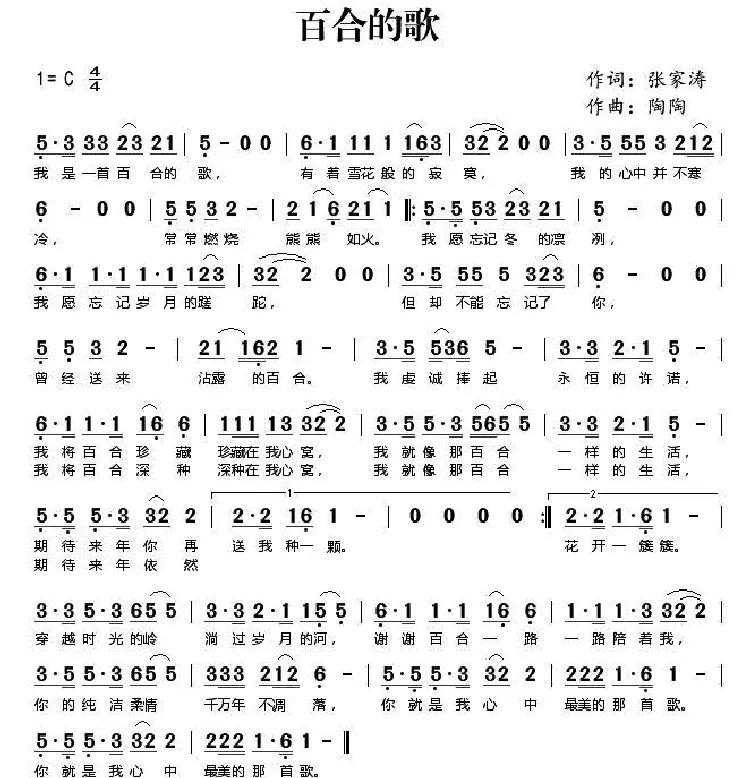 百合的歌
1= C 4/4
作词：张家涛
作曲：陶陶
5·3 33 23 21 | 5 - 0 0 | 6·1 11 1 163 | 32 2 0 0 | 3·5 55 3 212 |
我是一首百 合的 歌， 有着雪花般的寂 莫， 我的心中并不寒
6 - 0 0 | 5 5 3 2 - | 2 1 6 21 1 |: 5·5 53 23 21 | 5 - 0 0 |
冷， 常常燃烧 熊熊 如火。 我愿忘记冬 的凛 冽，
6·1 1·1 1·1 123 | 32 2 0 0 | 3·5 55 5 323 | 6 - 0 0 |
我愿忘记岁月的蹉 跎， 但却不能忘记了 你，
5 5 3 2 - | 21 162 1 - | 3·5 536 5 - | 3·3 2·1 5 - |
曾经送来 沾露 的百合。 我虔诚捧起 永恒的许诺，
6·1 1·1 16 6 | 111 13 32 2 | 3·5 5·3 565 5 | 3·3 2·1 5 - |
我将百合珍 藏 珍藏在我心室， 我就像那百合 一样的生活，
我将百合深 种 深种在我心室， 我就像那百合 一样的生活，
5·5 5·3 32 2 | 1 2·2 16 1 - | 0 0 0 0 :| 2 2·2 1·6 1 - |
期待来年你 再 送我种一颗。 花开一簇簇。
期待来年依 然
3·3 5·3 65 5 | 3·3 2·1 15 5 | 6·1 1·1 16 6 | 1·1 1·1 32 2 |
穿越时光的岭 淌过岁月的河， 谢谢百合一 路 一路陪着我，
3·5 5·3 65 5 | 333 212 6 - | 5·5 5·3 32 2 | 222 1·6 1 - |
你的纯洁柔情 千万年 不凋 落， 你就是我心 中 最美的那首歌。
5·5 5·3 32 2 | 222 1·6 1 - ‖
你就是我心 中 最美的那首歌。